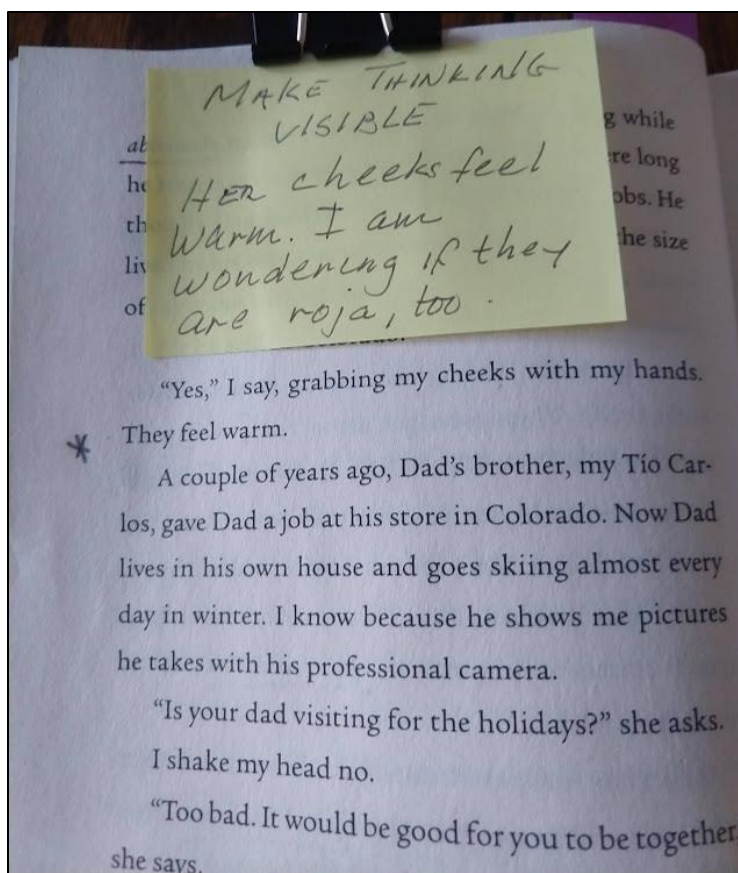 MAKE THINKING
VISIBLE
HER cheeks feel
warm. I am
wondering if they
are roja, too.
g while
re long
he
obs. He
th
he size
liv
of
"Yes," I say, grabbing my cheeks with my hands.
* They feel warm.
A couple of years ago, Dad's brother, my Tío Car-
los, gave Dad a job at his store in Colorado. Now Dad
lives in his own house and goes skiing almost every
day in winter. I know because he shows me pictures
he takes with his professional camera.
"Is your dad visiting for the holidays?" she asks.
I shake my head no.
"Too bad. It would be good for you to be together
she says.